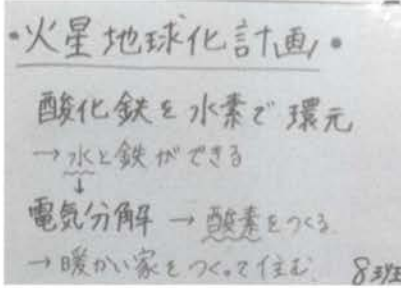 ・火星地球化計画・
酸化鉄を水素で環元
→水と鉄ができる
↓
電気分解→酸素をつくる
→暖かい家をつくって住む 8班